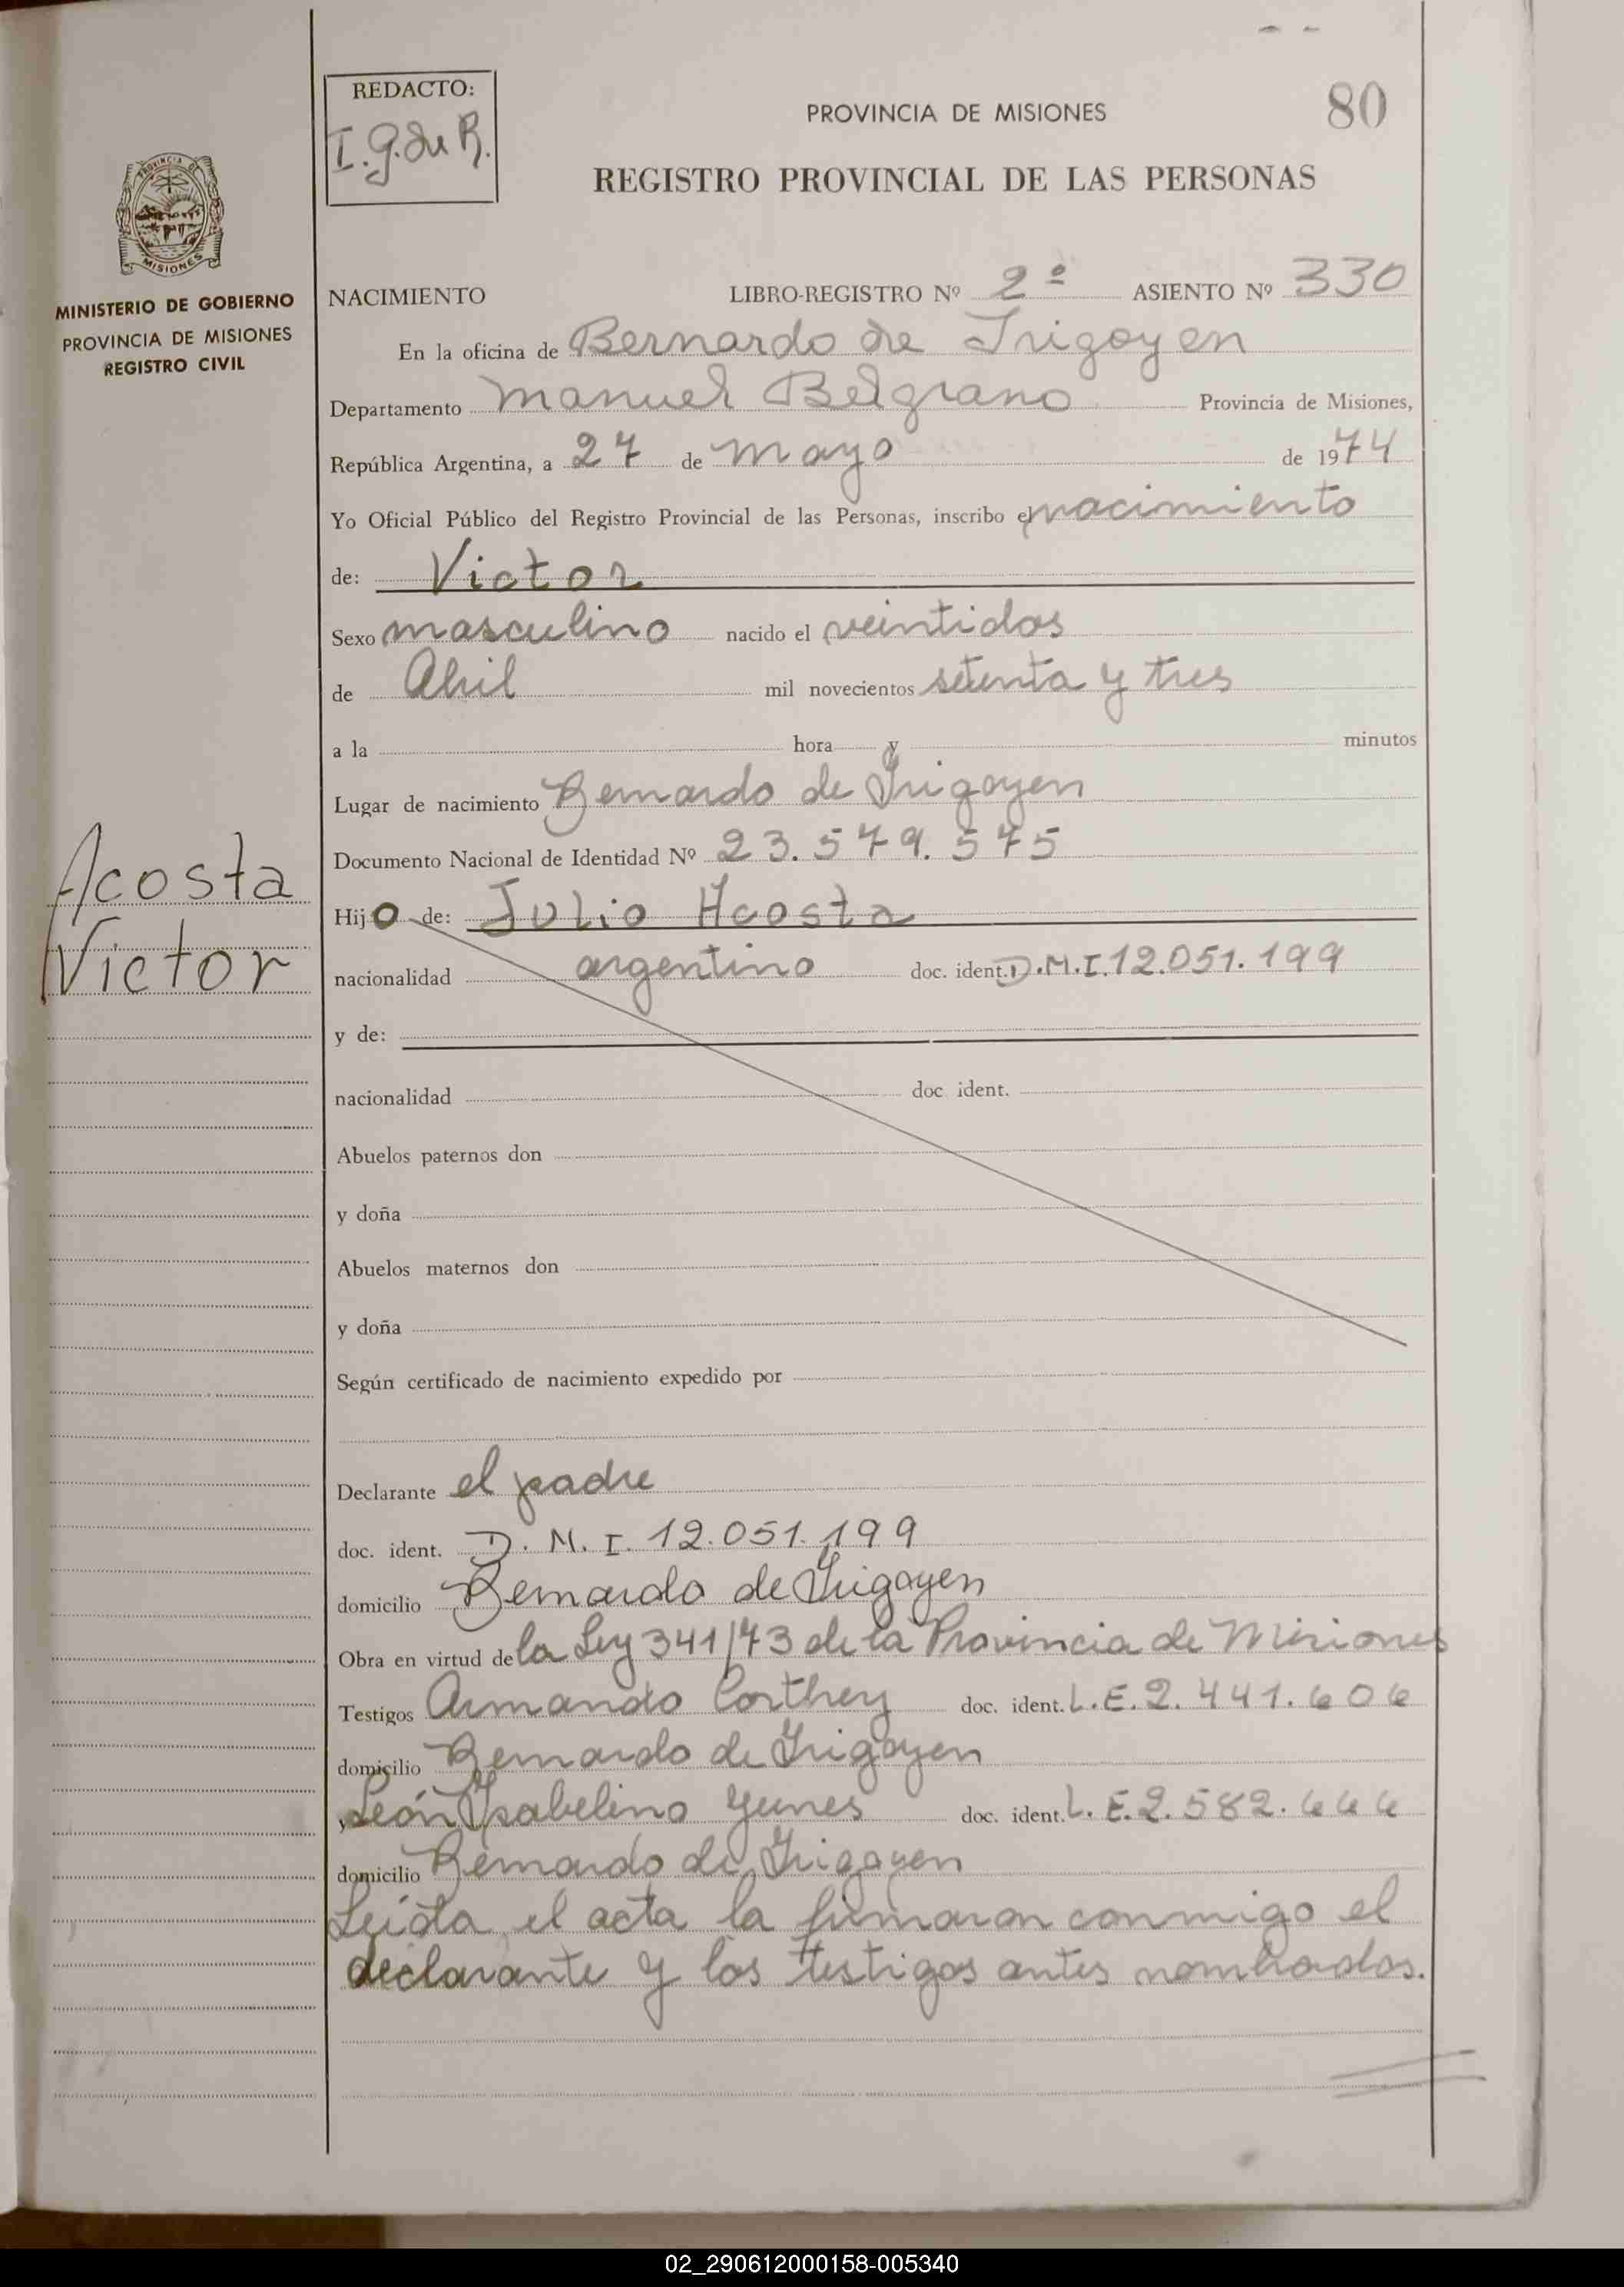 REDACTO:
I.G.de R.
PROVINCIA DE MISIONES
80
REGISTRO PROVINCIAL DE LAS PERSONAS
MISIONES
MINISTERIO DE GOBIERNO
PROVINCIA DE MISIONES
REGISTRO CIVIL
NACIMIENTO LIBRO-REGISTRO Nº 2º ASIENTO Nº 330
En la oficina de Bernardo de Irigoyen
Departamento Manuel Belgrano Provincia de Misiones,
República Argentina, a 27 de mayo de 1974
Yo Oficial Público del Registro Provincial de las Personas, inscribo el nacimiento
de: Victor
Sexo masculino nacido el veintidos
de Abril mil novecientos setenta y tres
a la hora y minutos
Lugar de nacimiento Bernardo de Irigoyen
Documento Nacional de Identidad Nº 23.579.575
Acosta
Victor
Hijo de: Julio Acosta
nacionalidad argentino doc. ident. D.N.I. 12.051.199
y de:
nacionalidad doc. ident.
Abuelos paternos don
y doña
Abuelos maternos don
y doña
Según certificado de nacimiento expedido por
Declarante el padre
doc. ident. D.N.I. 12.051.199
domicilio Bernardo de Irigoyen
Obra en virtud de la Ley 341/73 de la Provincia de Misiones
Testigos Armando Corthey doc. ident. L.E. 2.441.606
domicilio Bernardo de Irigoyen
y León Ysabelino Yunes doc. ident. L.E. 2.582.666
domicilio Bernardo de Irigoyen
Leída el acta la firmaron conmigo el
declarante y los testigos antes nombrados.
02_290612000158-005340